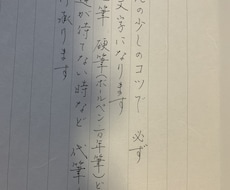 の少しのコツで 必ず
文字になります
筆 硬筆(ボールペン、万年筆)
が持てない時など 代筆
承ります